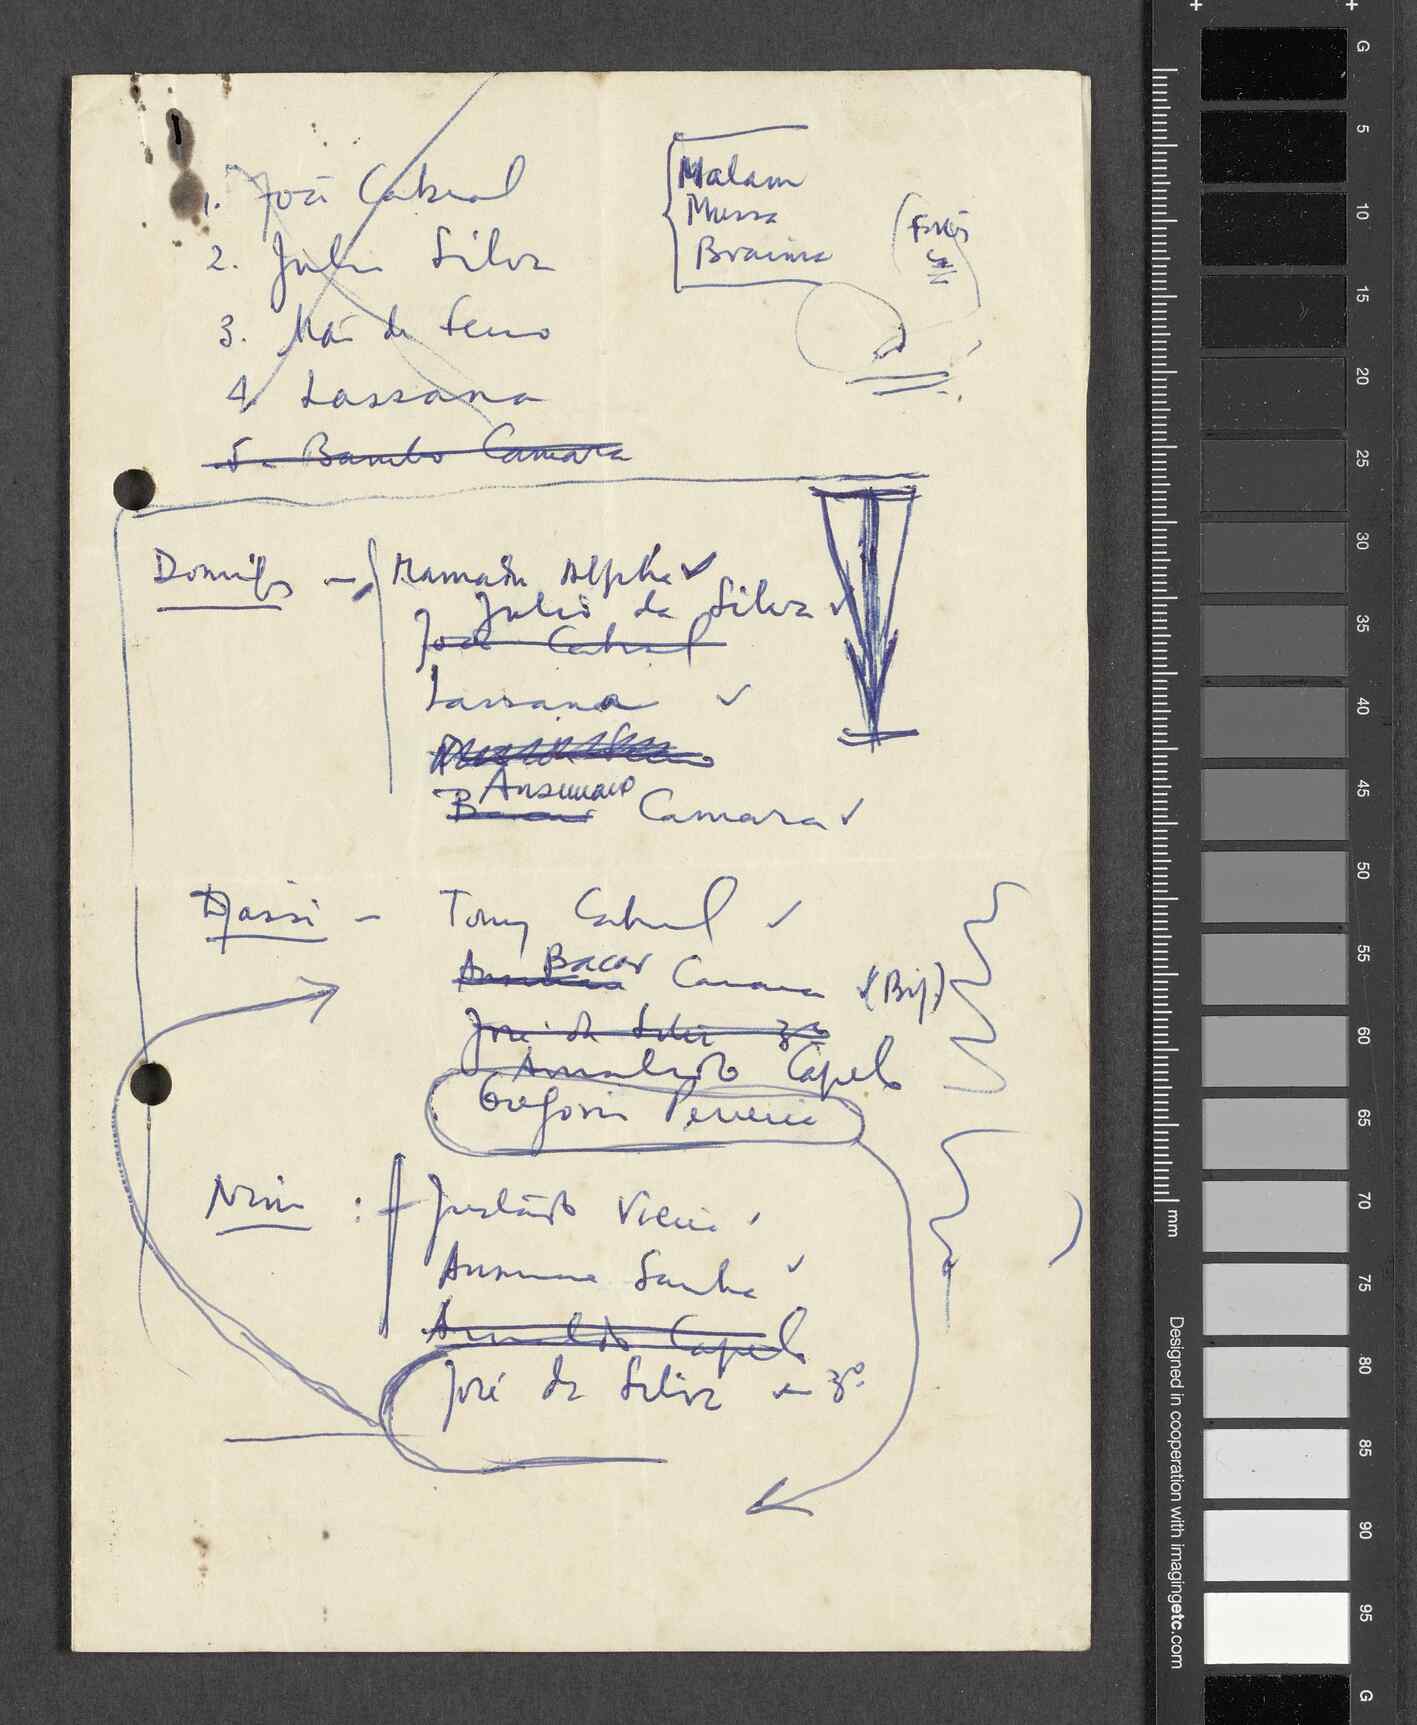 1. José Cabral
2. Julio Silva
3. de
4. Lassana
5. Bambo Camara
Malam
Mussa
Braima
Domingos - Mamadu Alpha ✓
Julio da Silva ✓
José Cabral
Lassana ✓
Ansumane
Bacar Camara ✓
Djassi - Tony Cabral ✓
Bacar
Camara ✓ (Bij.)
José da Silva 3º
Arnaldo Capelo
Gregorio Perreira
Nino : Justado Vieira ✓
Ansumane Sanha ✓
Arnaldo Capelo
José da Silva - 3º
G
5
10
15
20
25
30
35
40
45
50
55
60
65
70
75
80
85
90
95
G
mm
Designed in cooperation with imagingetc.com